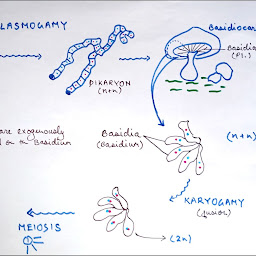 LASMOGAMY
Basidiocar
Basidia
(Pl.)
DIKARYON
(n+n)
are exogenously
on a Basidium
Basidia
(Basidium)
(n+n)
KARYOGAMY
(fusion)
MEIOSIS
(2n)